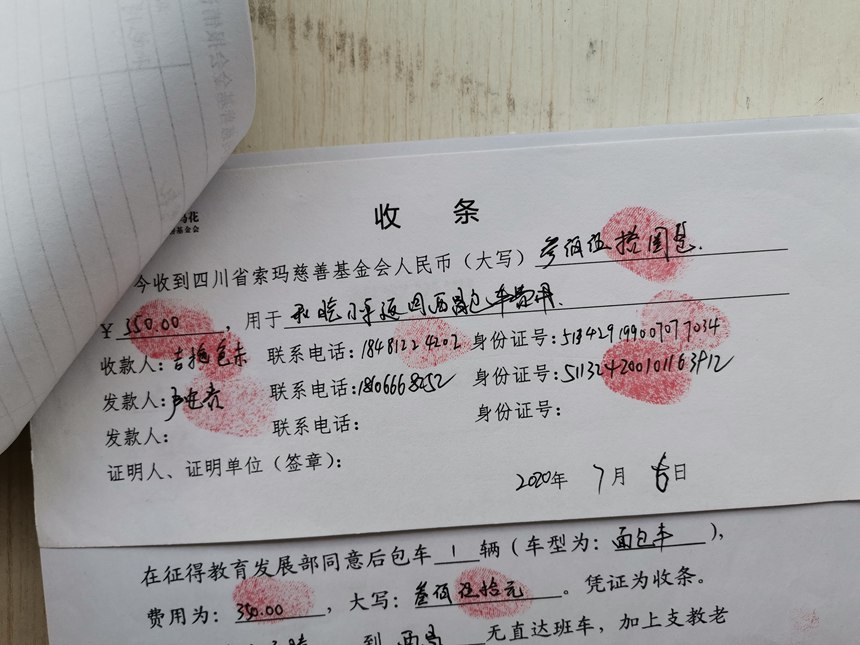 收 条
今收到四川省索玛慈善基金会人民币（大写）叁佰伍拾圆整.
￥350.00，用于
收款人： 联系电话：18481224202 身份证号：513429199007077034
发款人： 联系电话：18106668252 身份证号：511324200101163912
发款人： 联系电话： 身份证号：
证明人、证明单位（签章）：
2020年 7月 日
在征得教育发展部同意后包车 1 辆（车型为：面包车），
费用为：350.00，大写：叁佰伍拾元。凭证为收条。
到 西昌 无直达班车，加上支教老